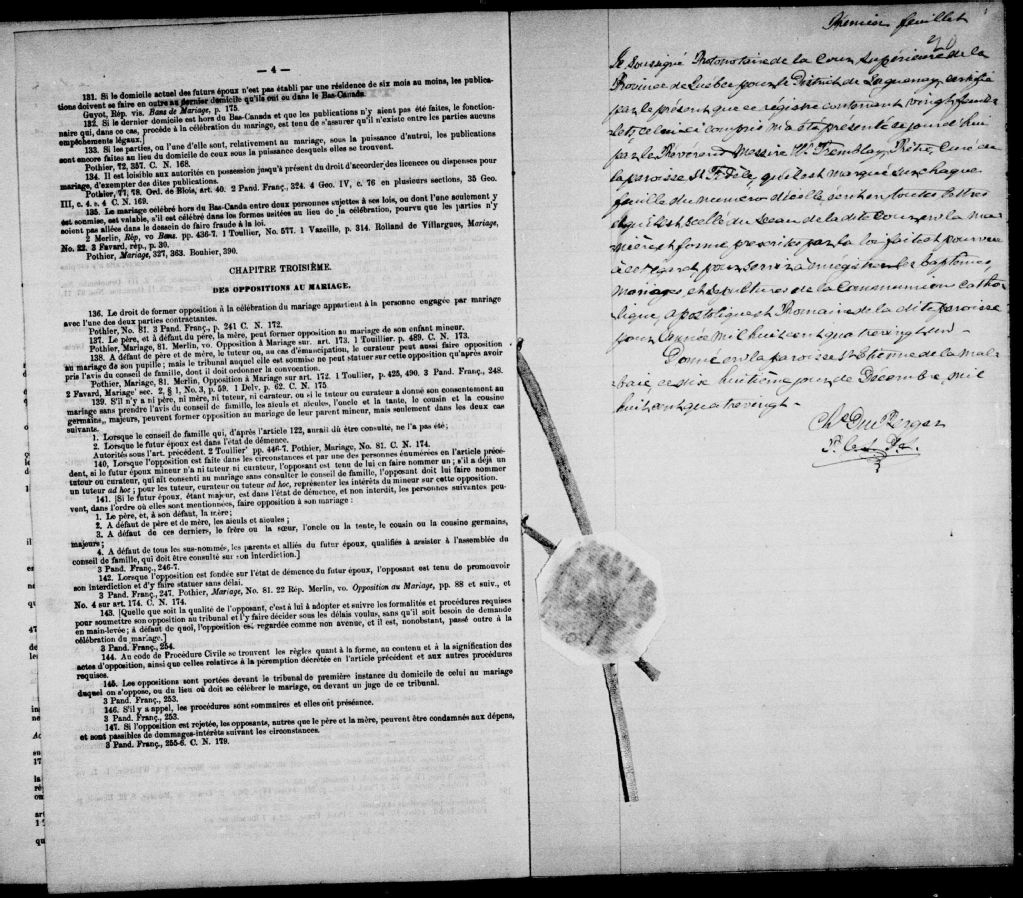 — 4 —
131. Si le domicile actuel des futurs époux n'est pas établi par une résidence de six mois au moins, les publica-
tions doivent se faire en outre au dernier domicile qu'ils ont eu dans le Bas-Canada.
Guyot, Rép. vis. Bans de Mariage, p. 175.
132. Si le dernier domicile est hors du Bas-Canada et que les publications n'y aient pas été faites, le fonction-
naire qui, dans ce cas, procède à la célébration du mariage, est tenu de s'assurer qu'il n'existe entre les parties aucuns
empêchements légaux.]
133. Si les parties, ou l'une d'elles sont, relativement au mariage, sous la puissance d'autrui, les publications
sont encore faites au lieu du domicile de ceux sous la puissance desquels elles se trouvent.
Pothier, 72, 357. C. N. 168.
134. Il est loisible aux autorités en possession jusqu'à présent du droit d'accorder des licences ou dispenses pour
mariage, d'exempter des dites publications.
Pothier, 77, 78. Ord. de Blois, art. 40. 2 Pand. Franç., 324. 4 Geo. IV, c. 76 en plusieurs sections, 35 Geo.
III, c. 4, s. 4 C. N. 169.
135. Le mariage célébré hors du Bas-Canda entre deux personnes sujettes à ses lois, ou dont l'une seulement y
est soumise, est valable, s'il est célébré dans les formes usitées au lieu de la célébration, pourvu que les parties n'y
soient pas allées dans le dessein de faire fraude à la loi.
2 Merlin, Rép, vo Bans. pp. 436-7. 1 Toullier, No. 577. 1 Vazeille, p. 314. Rolland de Villargues, Mariage,
No. 22. 3 Favard, rép., p. 30.
Pothier, Mariage, 327, 363. Bouhier, 390.
CHAPITRE TROISIÈME.
DES OPPOSITIONS AU MARIAGE.
136. Le droit de former opposition à la célébration du mariage appartient à la personne engagée par mariage
avec l'une des deux parties contractantes.
Pothier, No. 81. 3 Pand. Franç., p. 241 C. N. 172.
137. Le père, et à défaut du père, la mère, peut former opposition au mariage de son enfant mineur.
Pothier, Mariage, 81. Merlin, vo. Opposition à Mariage sur. art. 173. 1 Toullier, p. 489. C. N. 173.
138. A défaut de père et de mère, le tuteur ou, au cas d'émancipation, le curateur peut aussi faire opposition
au mariage de son pupille; mais le tribunal auquel elle est soumise ne peut statuer sur cette opposition qu'après avoir
pris l'avis du conseil de famille, dont il doit ordonner la convocation.
Pothier, Mariage, 81. Merlin, Opposition à Mariage sur art. 172. 1 Toullier, p. 425, 490. 3 Pand. Franç., 248.
2 Favard, Mariage, sec. 2, § 1, No. 3, p. 59. 1 Delv, p. 62. C. N. 175.
139. S'il n'y a ni père, ni mère, ni tuteur, ni curateur, ou si le tuteur ou curateur a donné son consentement au
mariage sans prendre l'avis du conseil de famille, les aïeuls et aïeules, l'oncle et la tante, le cousin et la cousine
germains, majeurs, peuvent former opposition au mariage de leur parent mineur, mais seulement dans les deux cas
suivants.
1. Lorsque le conseil de famille qui, d'après l'article 122, aurait dû être consulté, ne l'a pas été;
2. Lorsque le futur époux est dans l'état de démence.
Autorités sous l'art. précédent. 2 Toullier pp. 446-7. Pothier, Mariage, No. 81. C. N. 174.
140. Lorsque l'opposition est faite dans les circonstances et par une des personnes énumérées en l'article précé-
dent, si le futur époux mineur n'a ni tuteur ni curateur, l'opposant est tenu de lui en faire nommer un; s'il a déjà un
tuteur ou curateur, qui ait consenti au mariage sans consulter le conseil de famille, l'opposant doit lui faire nommer
un tuteur ad hoc; pour les tuteur, curateur ou tuteur ad hoc, représenter les intérêts du mineur sur cette opposition.
141. [Si le futur époux, étant majeur, est dans l'état de démence, et non interdit, les personnes suivantes peu-
vent, dans l'ordre où elles sont mentionnées, faire opposition à son mariage:
1. Le père, et, à son défaut, la mère;
2. A défaut de père et de mère, les aïeuls et aïeules;
3. A défaut de ces derniers, le frère ou la sœur, l'oncle ou la tente, le cousin ou la cousine germains,
majeurs;
4. A défaut de tous les sus-nommés, les parents et alliés du futur époux, qualifiés à assister à l'assemblée du
conseil de famille, qui doit être consulté sur son interdiction.]
3 Pand. Franç., 246-7.
142. Lorsque l'opposition est fondée sur l'état de démence du futur époux, l'opposant est tenu de promouvoir
son interdiction et d'y faire statuer sans délai.
3 Pand. Franç., 247. Pothier, Mariage, No. 81. 22 Rép. Merlin, vo. Opposition au Mariage, pp. 88 et suiv., et
No. 4 sur art. 174. C. N. 174.
143. [Quelle que soit la qualité de l'opposant, c'est à lui à adopter et suivre les formalités et procédures requises
pour soumettre son opposition au tribunal et l'y faire décider sous les délais voulus, sans qu'il soit besoin de demande
en main-levée; à défaut de quoi, l'opposition est regardée comme non avenue, et il est, nonobstant, passé outre à la
célébration du mariage.]
3 Pand. Franç., 254.
144. Au code de Procédure Civile se trouvent les règles quant à la forme, au contenu et à la signification des
actes d'opposition, ainsi que celles relatives à la péremption décrétée en l'article précédent et aux autres procédures
requises.
145. Les oppositions sont portées devant le tribunal de première instance du domicile de celui au mariage
duquel on s'oppose, ou du lieu où doit se célébrer le mariage, ou devant un juge de ce tribunal.
3 Pand. Franç., 253.
146. S'il y a appel, les procédures sont sommaires et elles ont préséance.
3 Pand. Franç., 253.
147. Si l'opposition est rejetée, les opposants, autres que le père et la mère, peuvent être condamnés aux dépens,
et sont passibles de dommages-intérêts suivant les circonstances.
3 Pand. Franç., 255-6. C. N. 179.
Premier feuillet
Je soussigné Protonotaire de la Cour Supérieure de la
Province de Québec pour le District de Saguenay, certifie
par le présent que ce régistre contenant vingt feuil-
lets, celui-ci compris m'a été présenté ce jourd'hui
par le Révérend Messire Wm Tremblay, Prêtre, Curé de
la paroisse St. Fidèle, qu'il est marqué sur chaque
feuille du numéro d'icelle écrit en toutes lettres
et qu'il est scellé du Sceau de la dite Cour, en la ma-
nière et forme prescrites par la loi faite et pourvue
à cet égard, pour servir à enrégistrer les baptêmes,
mariages, et sépultures de la Communion Catho-
lique, Apostolique et Romaine de la dite paroisse
pour l'année mil huit cent quatrevingt un -
Donné en la paroisse St. Etienne de la Mal-
baie, ce dix huitième jour de Décembre, mil
huit cent quatrevingt -
Chs Du Berger